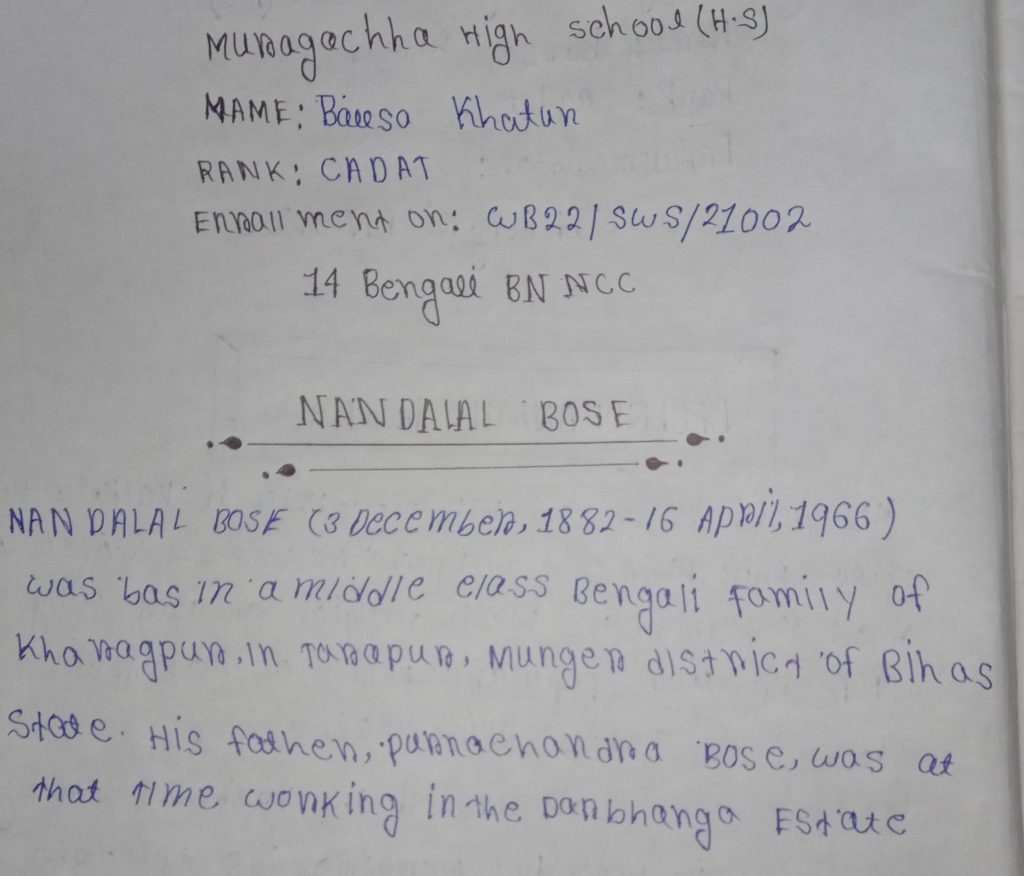 Muragachha High School (H.S)
NAME: Bilesa Khatun
RANK: CADAT
Enrall ment on: WB22/SWS/21002
14 Bengali BN NCC
NANDALAL BOSE
NANDALAL BOSE (3 December, 1882-16 April, 1966)
was bas in a middle class Bengali family of
Kharagpur, in Tarapur, Munger district of Bihas
State. His father, purnachandra Bose, was at
that time working in the Darbhanga Estate